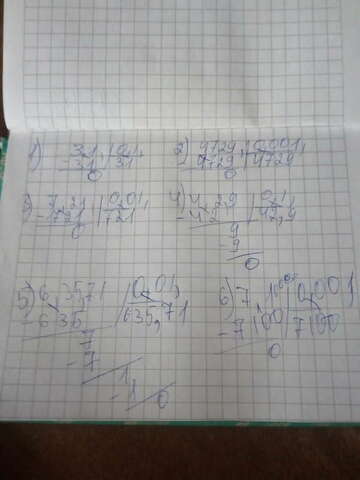 1) 3,1, | 0,1,
- 31 | 31
0
2) 4,729, | 0,001,
- 4729 | 4729
0
3) 7,21, | 0,01,
- 721 | 721
0
4) 4,29 | 0,1,
- 42 | 42,9
9
- 9
0
5) 6,3571 | 0,01,
- 635 | 635,71
7
- 7
1
- 1
0
6) 7, | 0,001
- 7100 | 7100
0